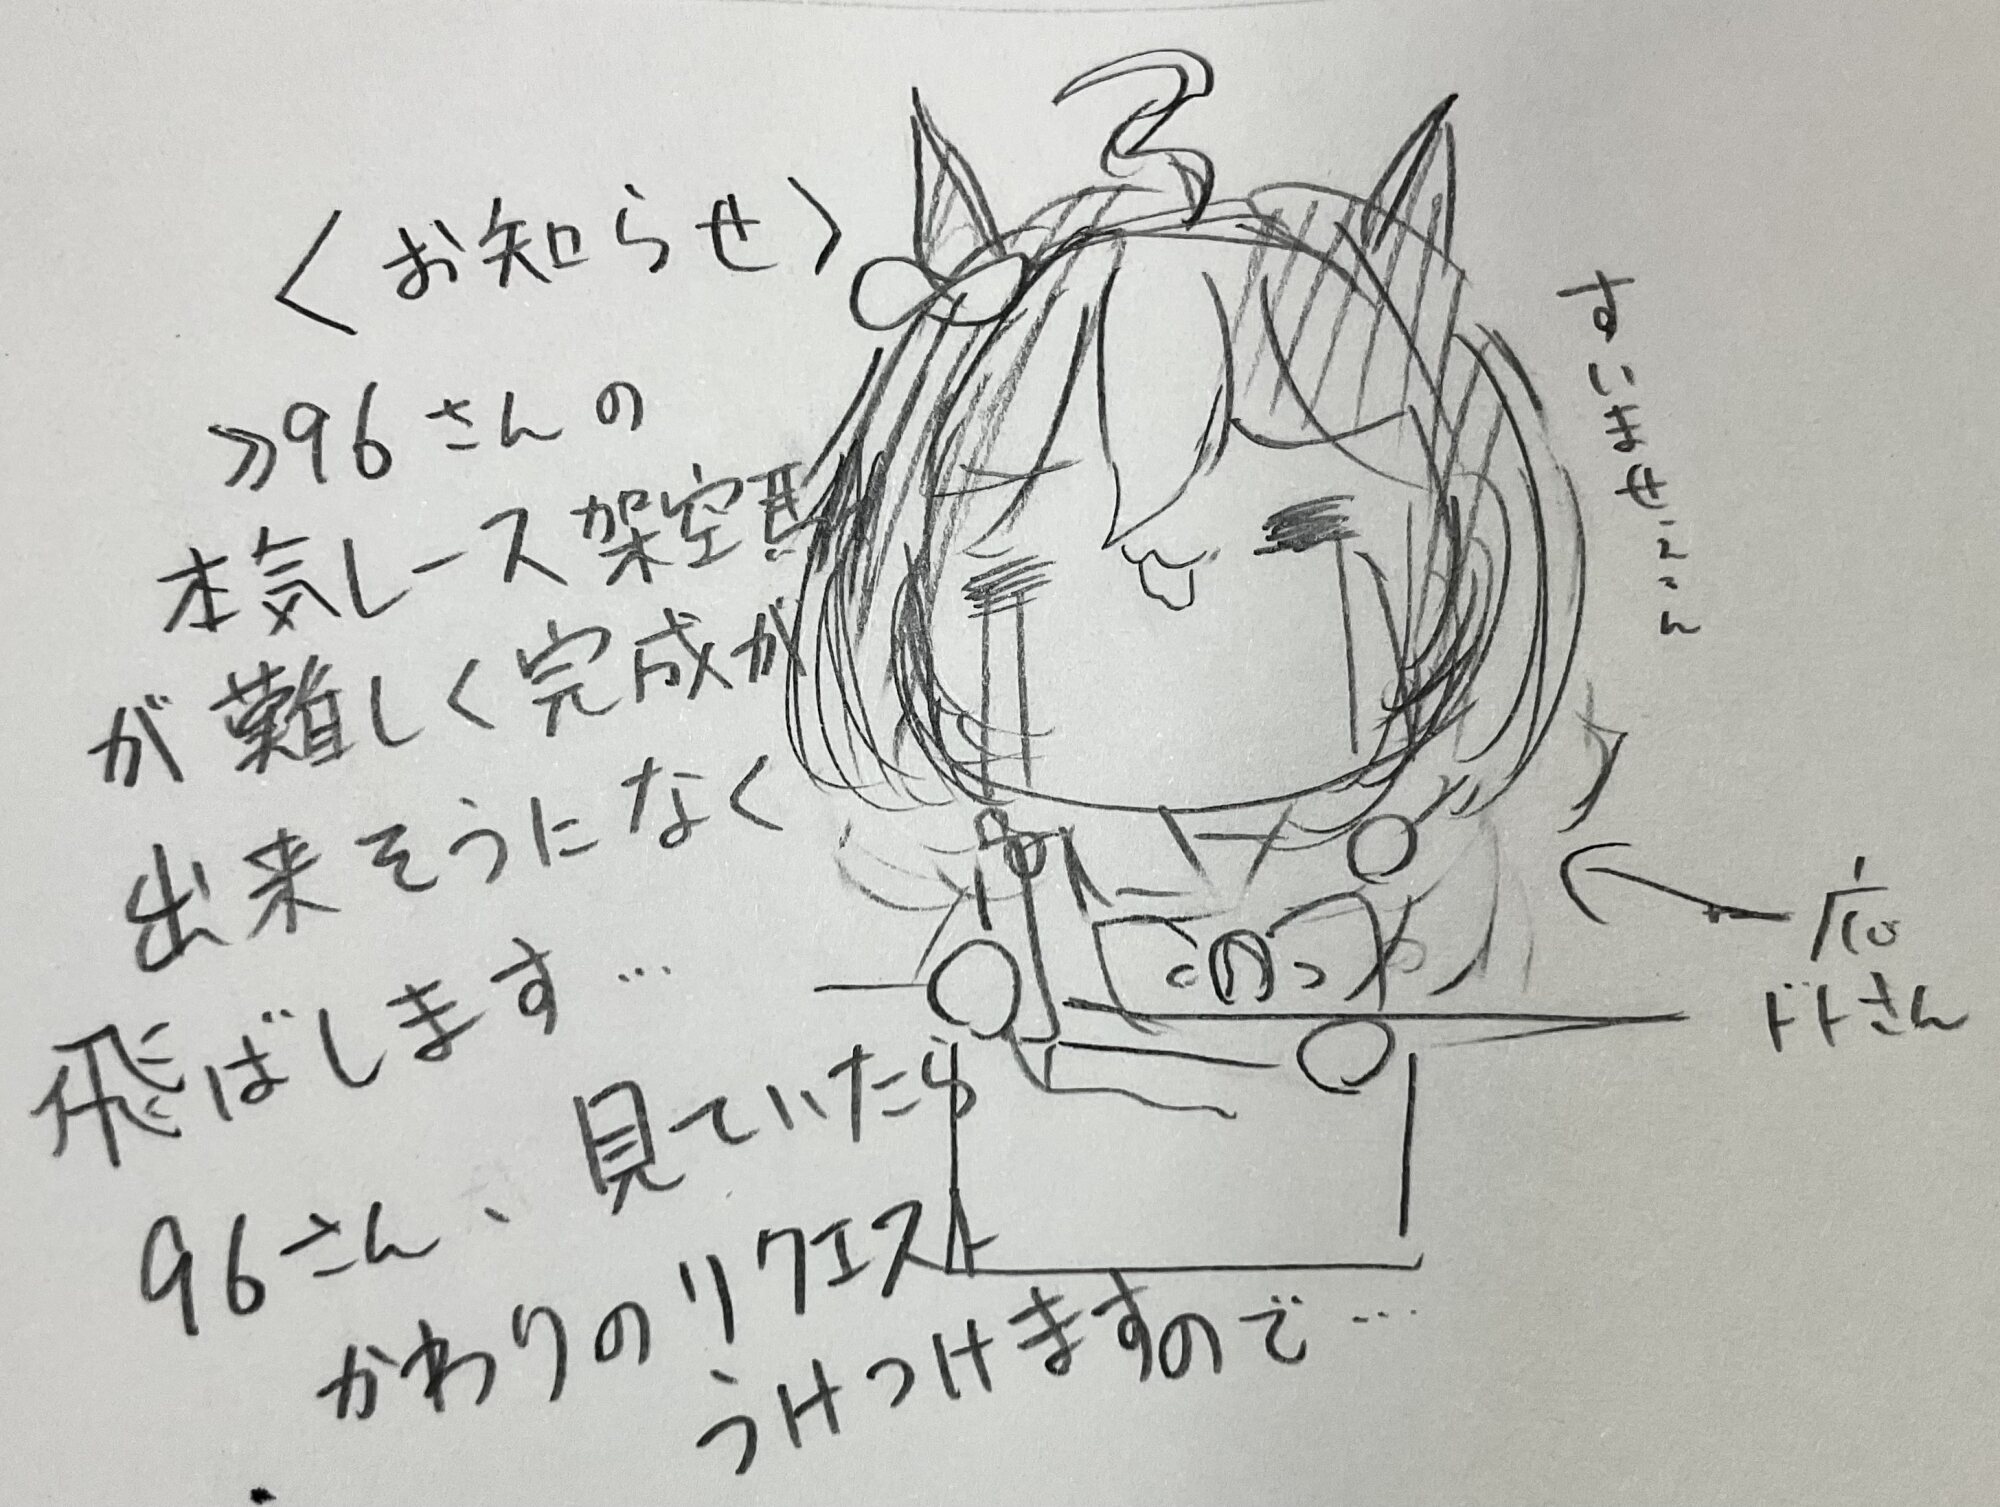 〈お知らせ〉
≫96さんの
本気レース架空馬
が難しく完成が
出来そうになく
飛ばします…
96さん、見ていたら
かわりのリクエスト
うけつけますので…
すいませぇぇん
応
ドトさん